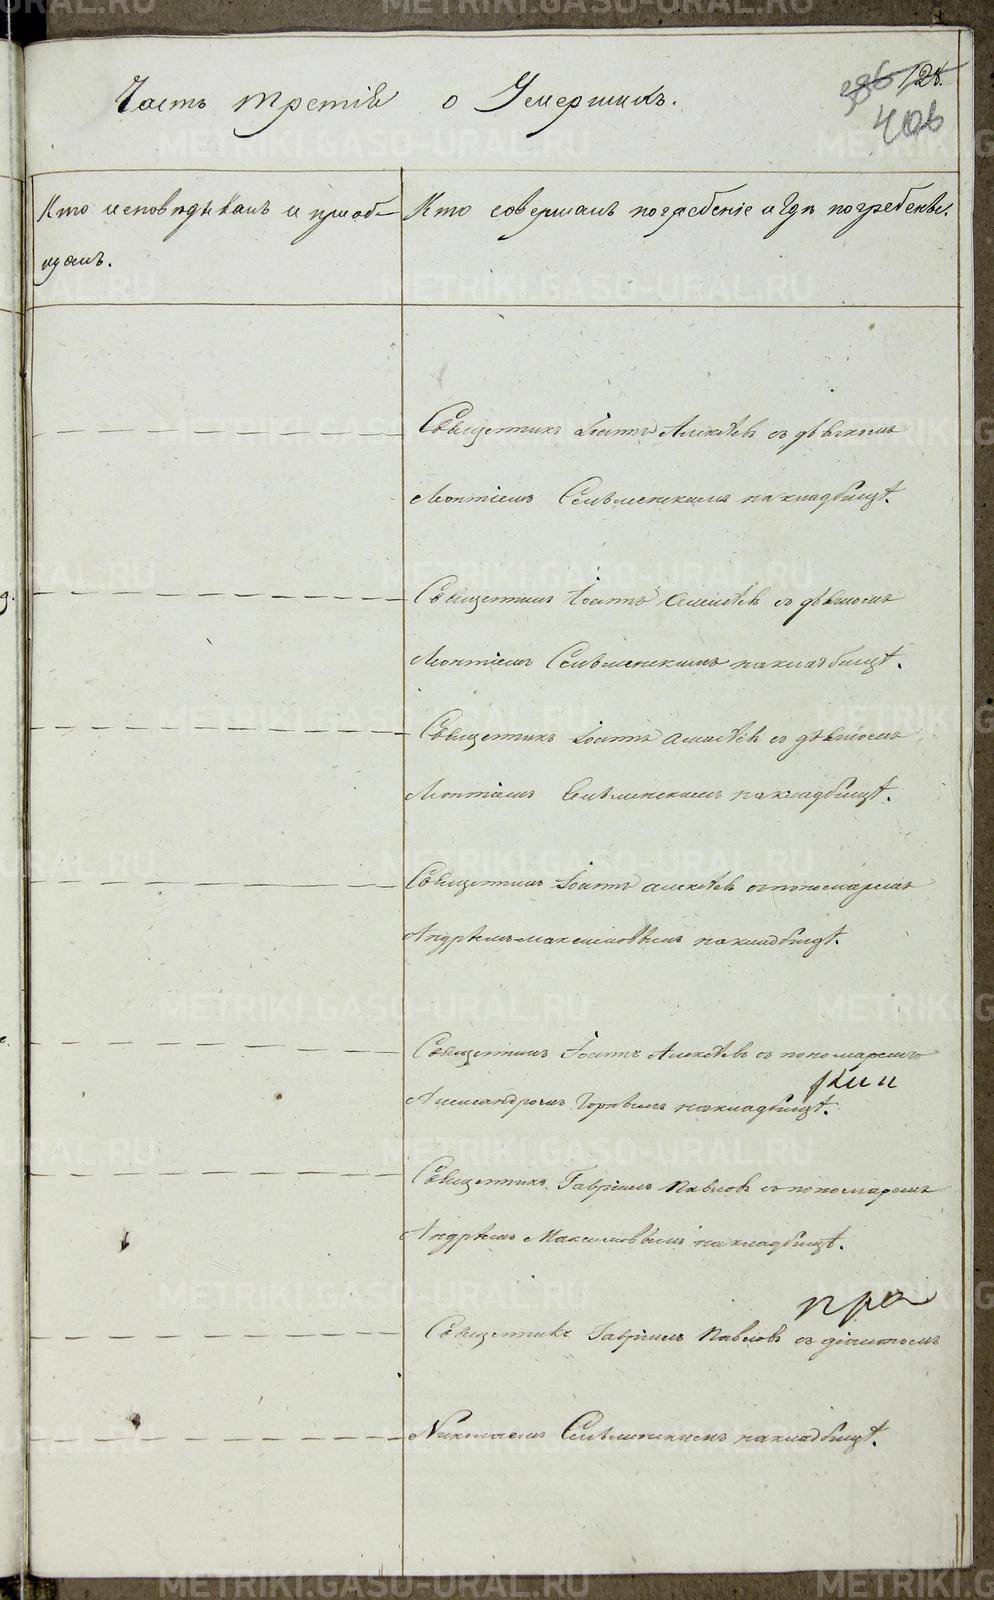 Часть третія о Умершихъ.
128.
406
Кто исповѣдывалъ и пріоб-
щалъ.
Кто совершалъ погребеніе и гдѣ погребены.
Священникъ Іоаннъ Алексѣевъ съ дьячкомъ
Леонтіемъ Селѣменскимъ на кладбищѣ.
Священникъ Іоаннъ Алексѣевъ съ дьячкомъ
Леонтіемъ Селѣменскимъ на кладбищѣ.
Священникъ Іоаннъ Алексѣевъ съ дьячкомъ
Леонтіемъ Селѣменскимъ на кладбищѣ.
Священникъ Іоаннъ Алексѣевъ съ пономаремъ
Андрѣемъ Максимовымъ на кладбищѣ.
Священникъ Іоаннъ Алексѣевъ съ пономаремъ
Александромъ на кладбищѣ.
Священникъ Гавріилъ Павловъ съ пономаремъ
Андрѣемъ Максимовымъ на кладбищѣ.
Священникъ Гавріилъ Павловъ съ діакономъ
Николаемъ Селѣменскимъ на кладбищѣ.
METRIKI.GASO-URAL.RU